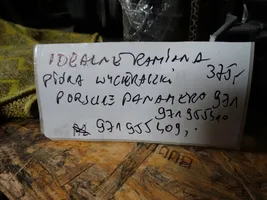 IDEALNE RAMIONA
PIÓRA WYCIERACZKI 375,-
PORSCHE PANAMERA 971
971955410
971955409,-